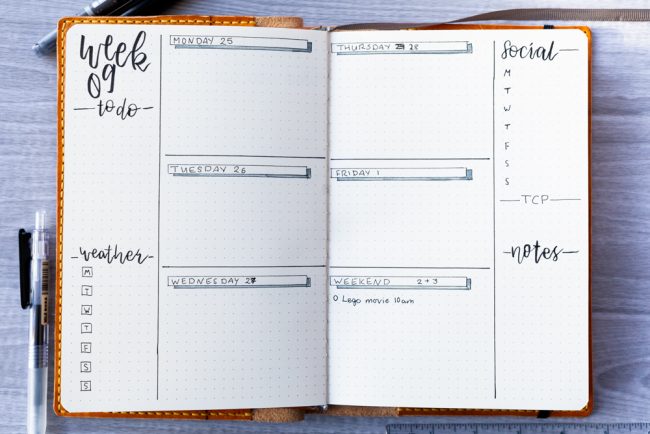 week
09
to do
weather
M
T
W
T
F
S
S
MONDAY 25
TUESDAY 26
WEDNESDAY 27
THURSDAY 28
FRIDAY 1
WEEKEND 2+3
O Lego movie 10am
Social
M
T
W
T
F
S
S
TCP
notes